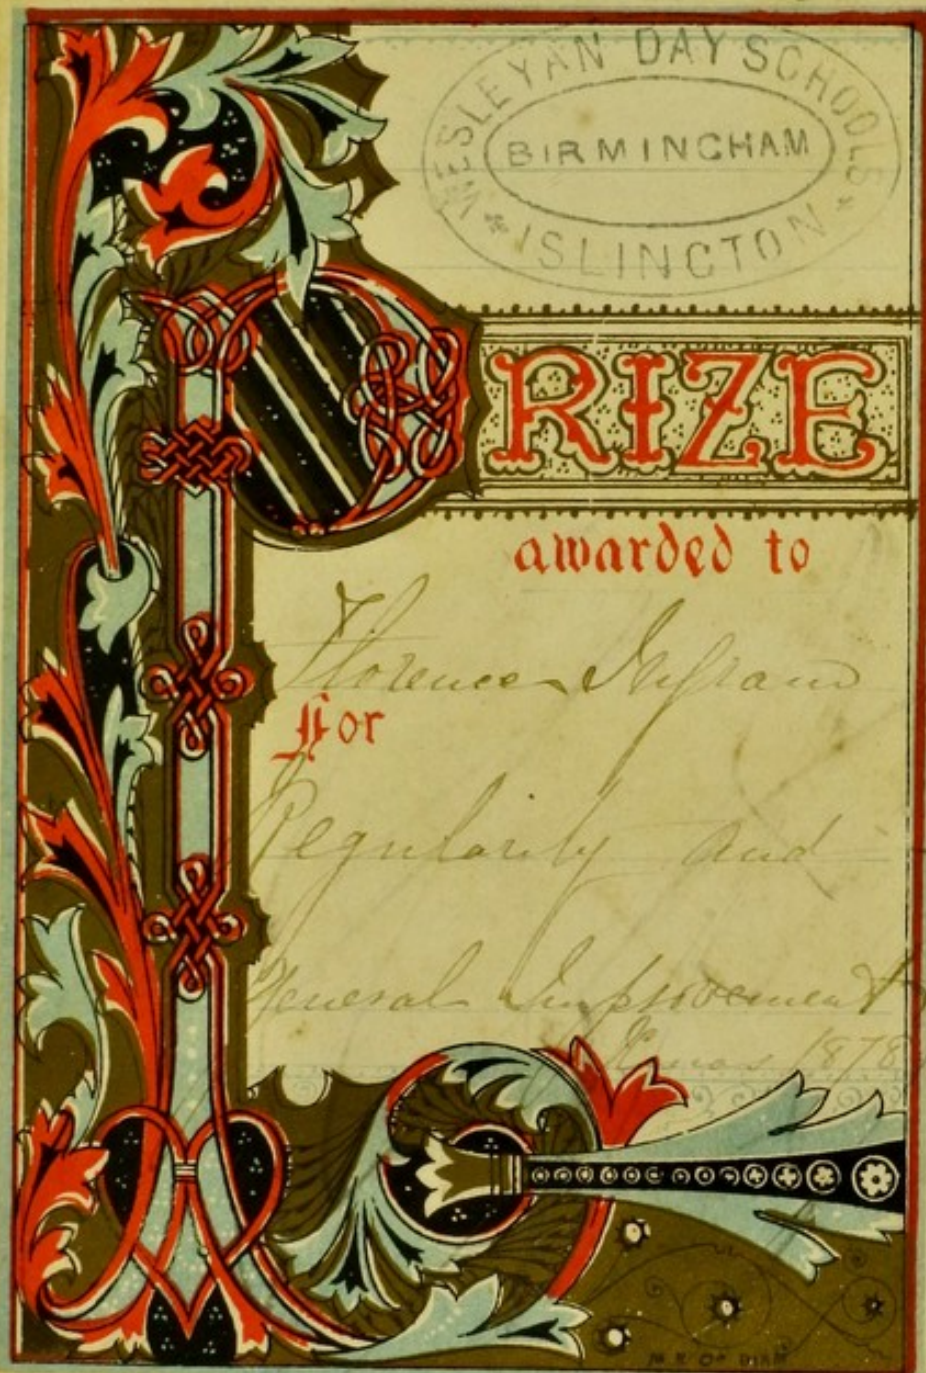 WESLEYAN DAY SCHOOLS
BIRMINGHAM
ISLINGTON
PRIZE
awarded to
Florence Ingram
For
Regularity and
General Improvement
Xmas 1878